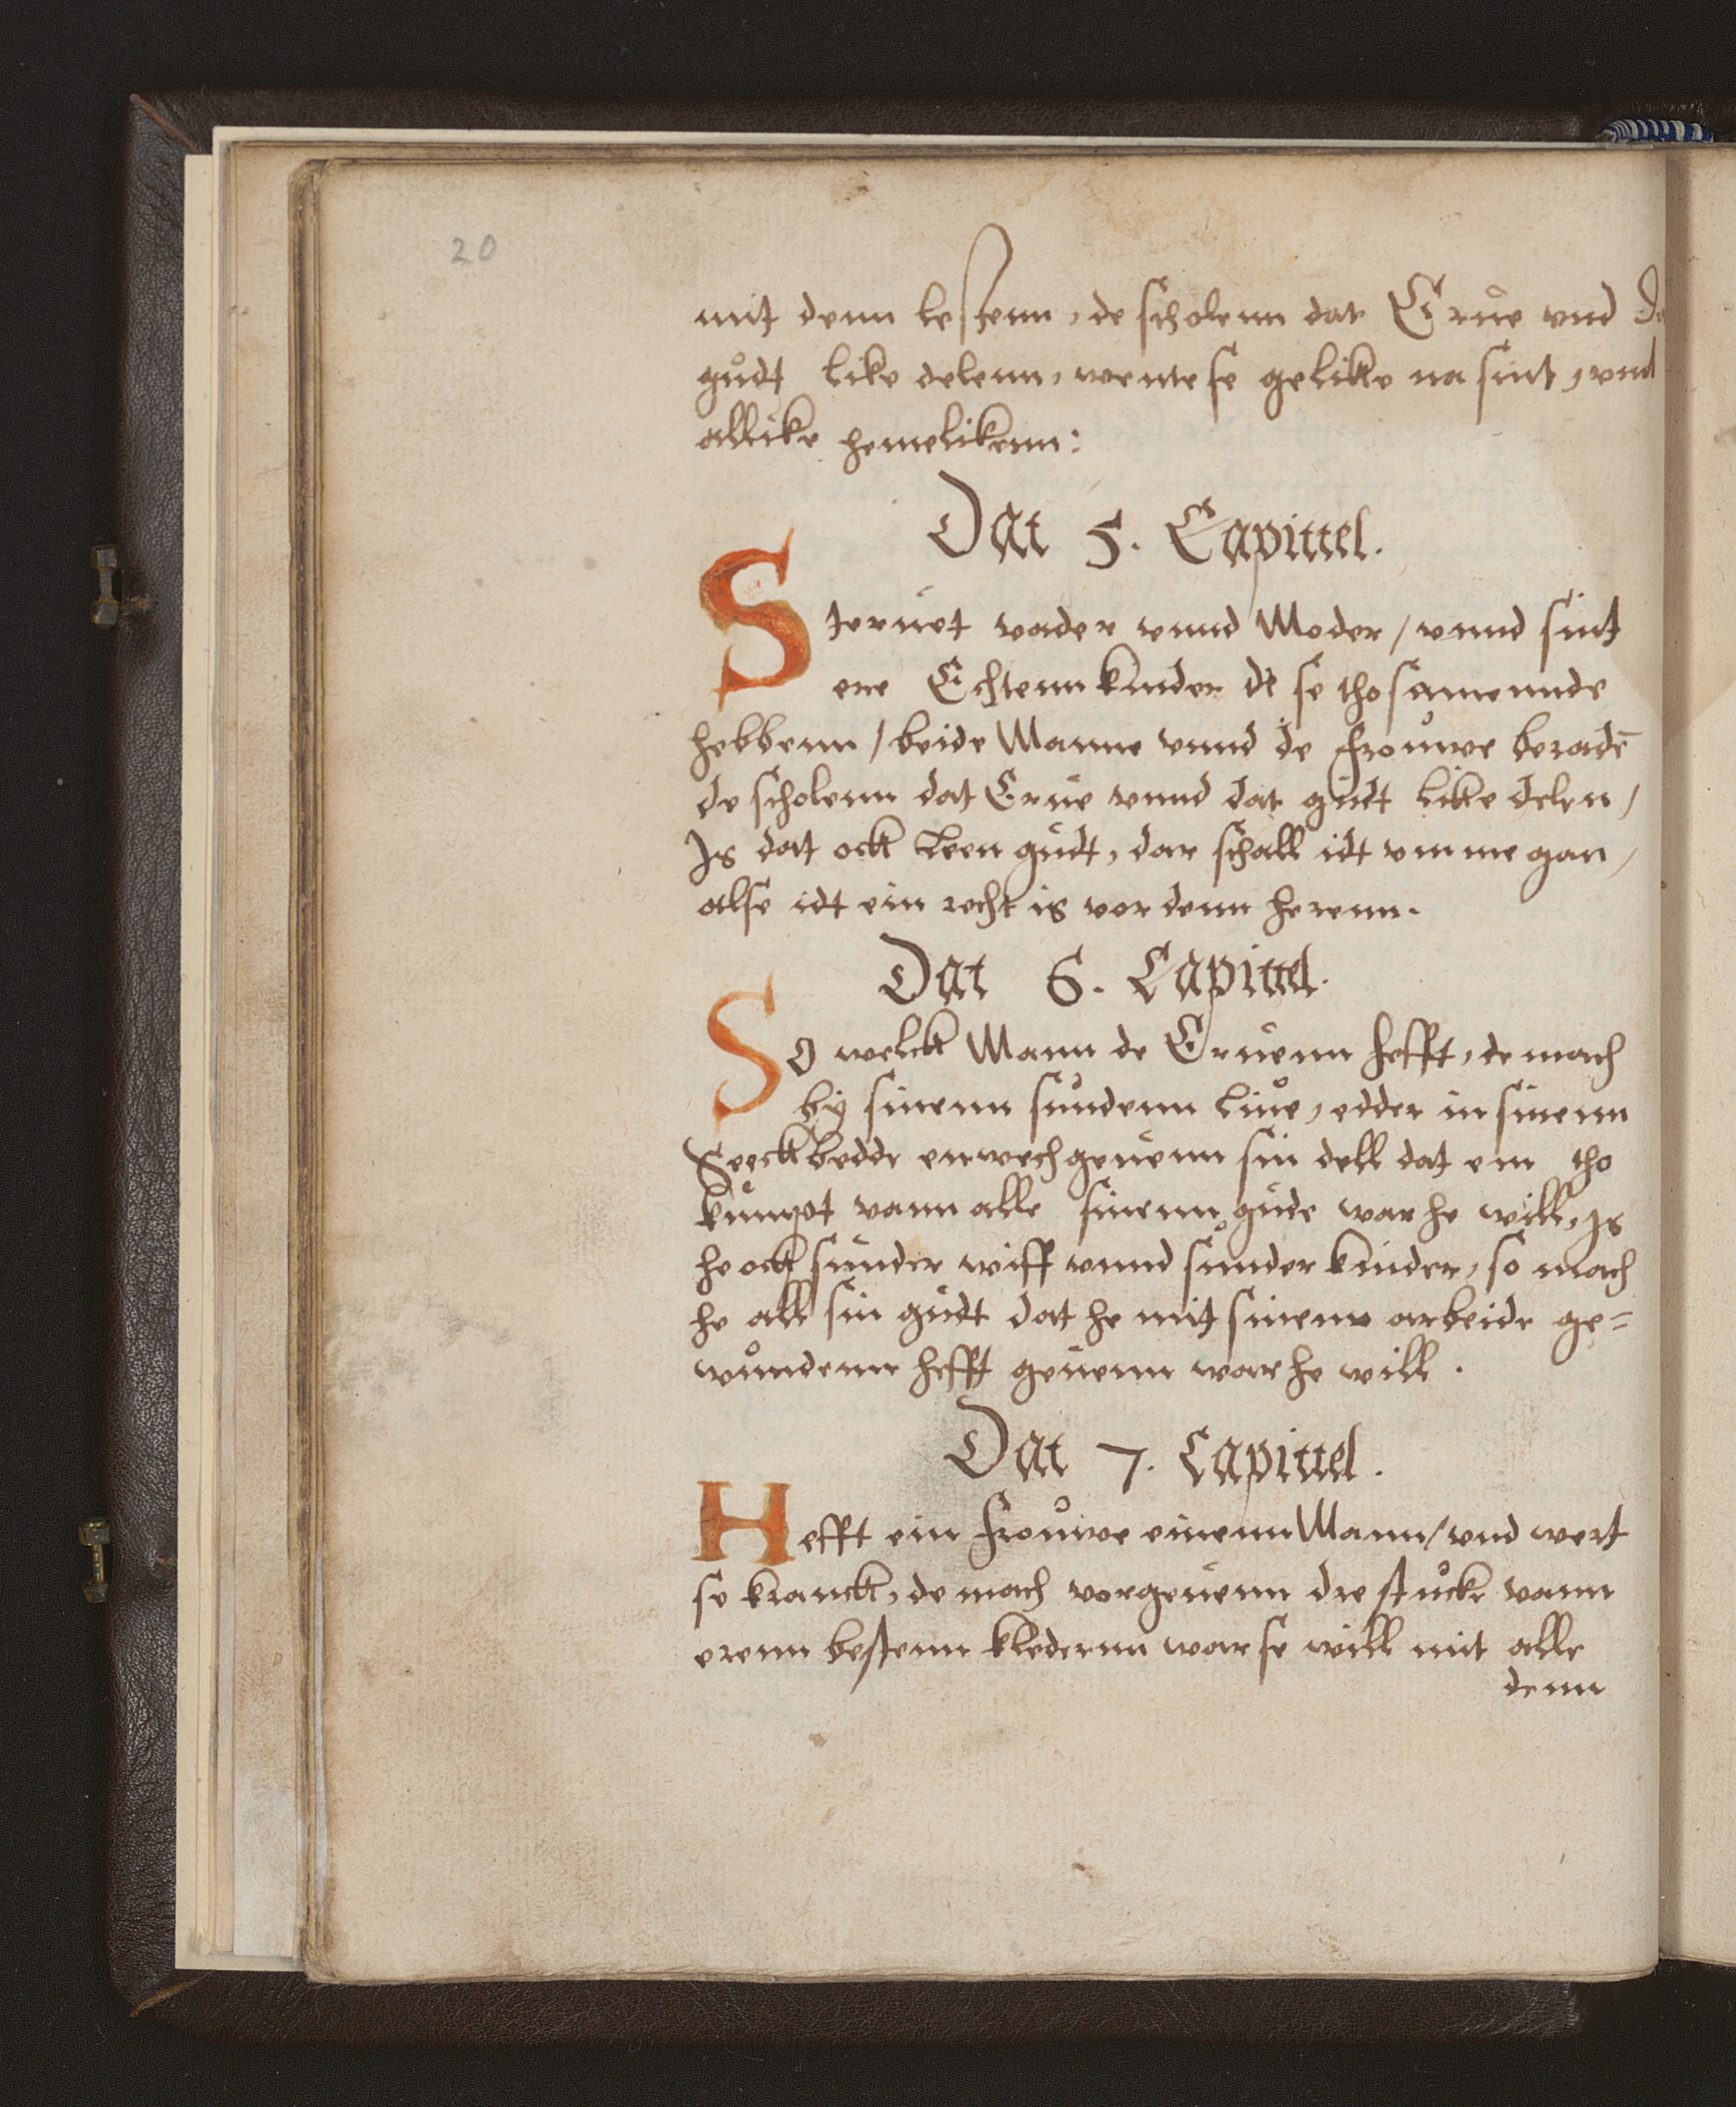 20
mit denn lestenn, de scholenn dat Erue vnd
gudt like delenn, wente se gelike na sint, vnd
allike hemelikenn:
Dat 5. Capittel.
Steruet vader vnnd Moder / vnnd sint
ere Echtenn kinder de se thosamennde
hebbenn / beide Manne vnnd de frouwe beradē
de scholenn dat Erue vnnd dat gudt like delen /
Is dat ock Leen gudt, dar schall idt vmme gan /
alse idt ein recht is vor denn herenn.
Dat 6. Capittel.
So welck Mann de Eruenn hefft, de mach
by sinenn sundenn liue, edder in sinenn
Seeckbedde enwech geuenn sin dell dat em tho
kumpt vann alle sinenn gude war he will, Is
he ock sunder wiff vnnd sunder kinder, so mach
he all sin gudt dat he mit sinenn arbeide ge=
wundenn hefft geuenn war he will.
Dat 7. Capittel.
Hefft ein frouwe einenn Mann / vnd wert
se kranck, de mach vorgeuenn dre stucke vann
erenn bestenn kledernn war se will mit alle
denn